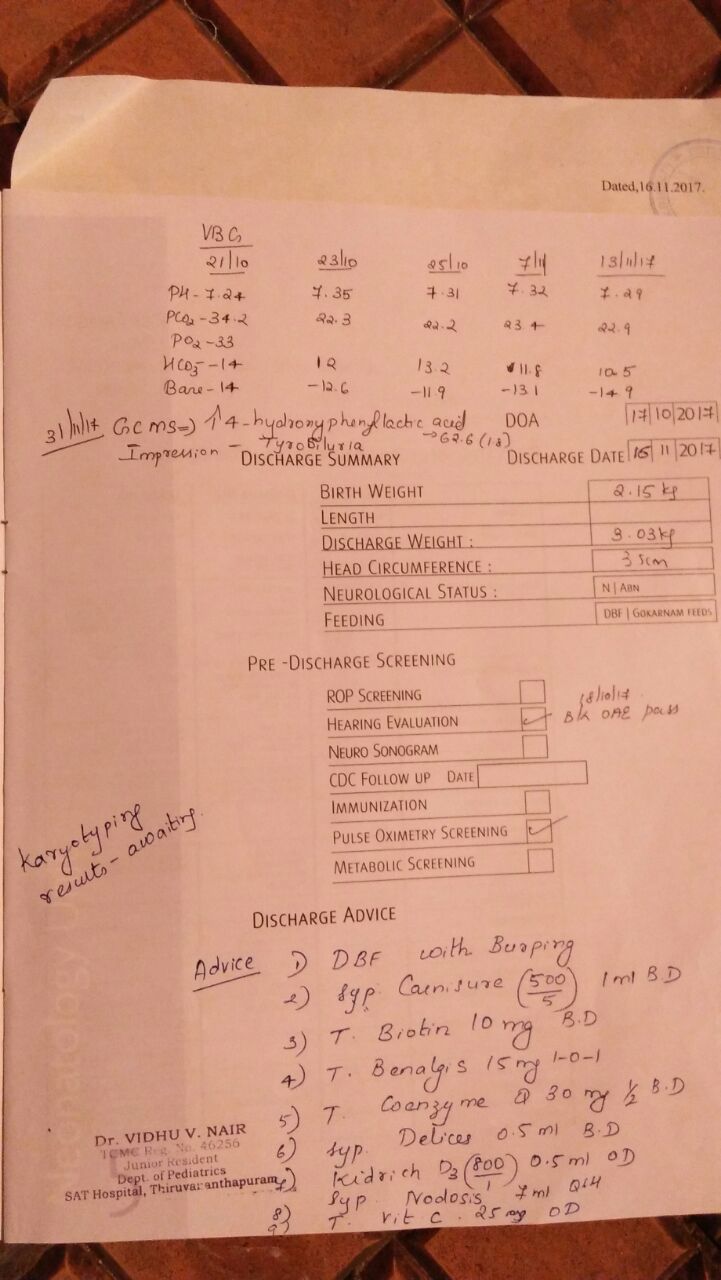 Dated,16.11.2017.
VBG
21/10 23/10 25/10 7/11 13/11/17
PH- 7.24 7.35 7.31 7.32 7.29
PCO2 -34.2 22.3 22.2 23.4 22.9
PO2 -33
HCO3- -14 12 13.2 11.8 10.5
Base -14 -12.6 -11.9 -13.1 -14.9
31/11/17 GCMS=) ↑4-hydroxyphenyl lactic acid DOA 17 10 2017
→62.6 (18)
Impression - Tyrosiluria
DISCHARGE SUMMARY DISCHARGE DATE 16 11 2017
BIRTH WEIGHT 2.15 kg
LENGTH
DISCHARGE WEIGHT : 3.03kg
HEAD CIRCUMFERENCE : 35cm
NEUROLOGICAL STATUS : N | ABN
FEEDING DBF | GOKARNAM FEEDS
PRE -DISCHARGE SCREENING
ROP SCREENING 18/10/17
HEARING EVALUATION B/L OAE pass
NEURO SONOGRAM
CDC FOLLOW UP DATE
IMMUNIZATION
PULSE OXIMETRY SCREENING
METABOLIC SCREENING
Karyotyping
results - awaiting.
DISCHARGE ADVICE
Advice 1) DBF with Burping
2) Syp. Carnisure (500/5) 1ml BD
3) T. Biotin 10 mg B.D
4) T. Benalgis 15mg 1-0-1
5) T. Coenzyme Q 30 mg ½ B.D
6) Syp. Delices 0.5 ml B.D
7) Kidrich D3 (800/1) 0.5 ml OD
8) Syp. Nodosis 7ml Q6H
9) T. Vit C. 25 mg OD
Dr. VIDHU V. NAIR
TCMC Reg. No. 46256
Junior Resident
Dept. of Pediatrics
SAT Hospital, Thiruvananthapuram